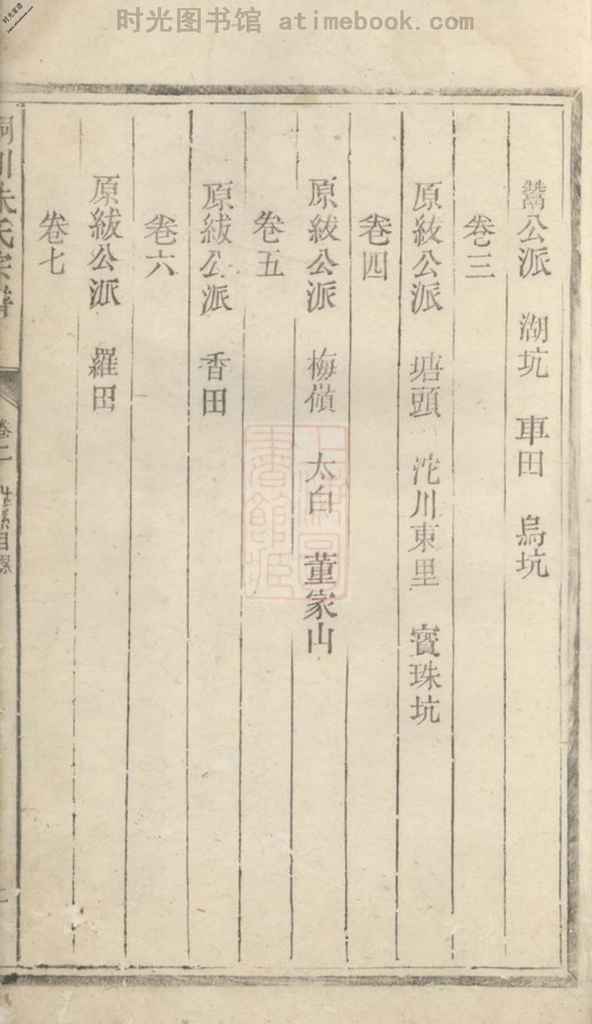 时光图书馆 atimebook.com
公派 湖坑 車田 烏坑
卷三
原紱公派 塘頭 沱川東里 寳珠坑
卷四
原紱公派 梅嶺 太白 董家山
卷五
原紱公派 香田
卷六
原紱公派 羅田
卷七
川朱氏宗譜
卷二